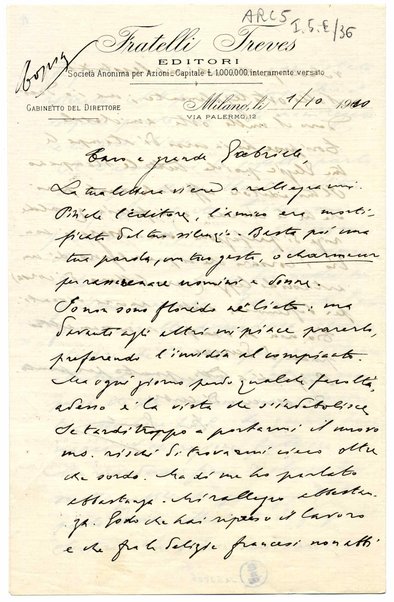 ARC5
I.5.E/36
Copia
Fratelli Treves
EDITORI
Società Anonima per Azioni - Capitale L 1,000,000. interamente versato
GABINETTO DEL DIRETTORE
Milano, li 1/10 1910
VIA PALERMO, 12
Caro e grande Gabriele,
La tua lettera viene a rallegrarmi.
Più che l'editore, l'amico era morti-
ficato del tuo silenzio. Basta poi una
tua parola, un tuo gesto, o charmeur
per rasserenare uomini e donne.
Io non sono florido nè lieto: ma
davanti agli altri mi piace parerlo,
preferendo l'invidia al compianto.
Ma ogni giorno perdo qualche facoltà,
adesso è la vista che s'indebolisce
Se tardi troppo a portarmi il nuovo
ms. rischi di trovarmi cieco oltre
che sordo. Ma di me ho parlato
abbastanza. Mi rallegro abbastan-
za. Godo che hai ripreso il lavoro
e che fra le delizie francesi non abbi